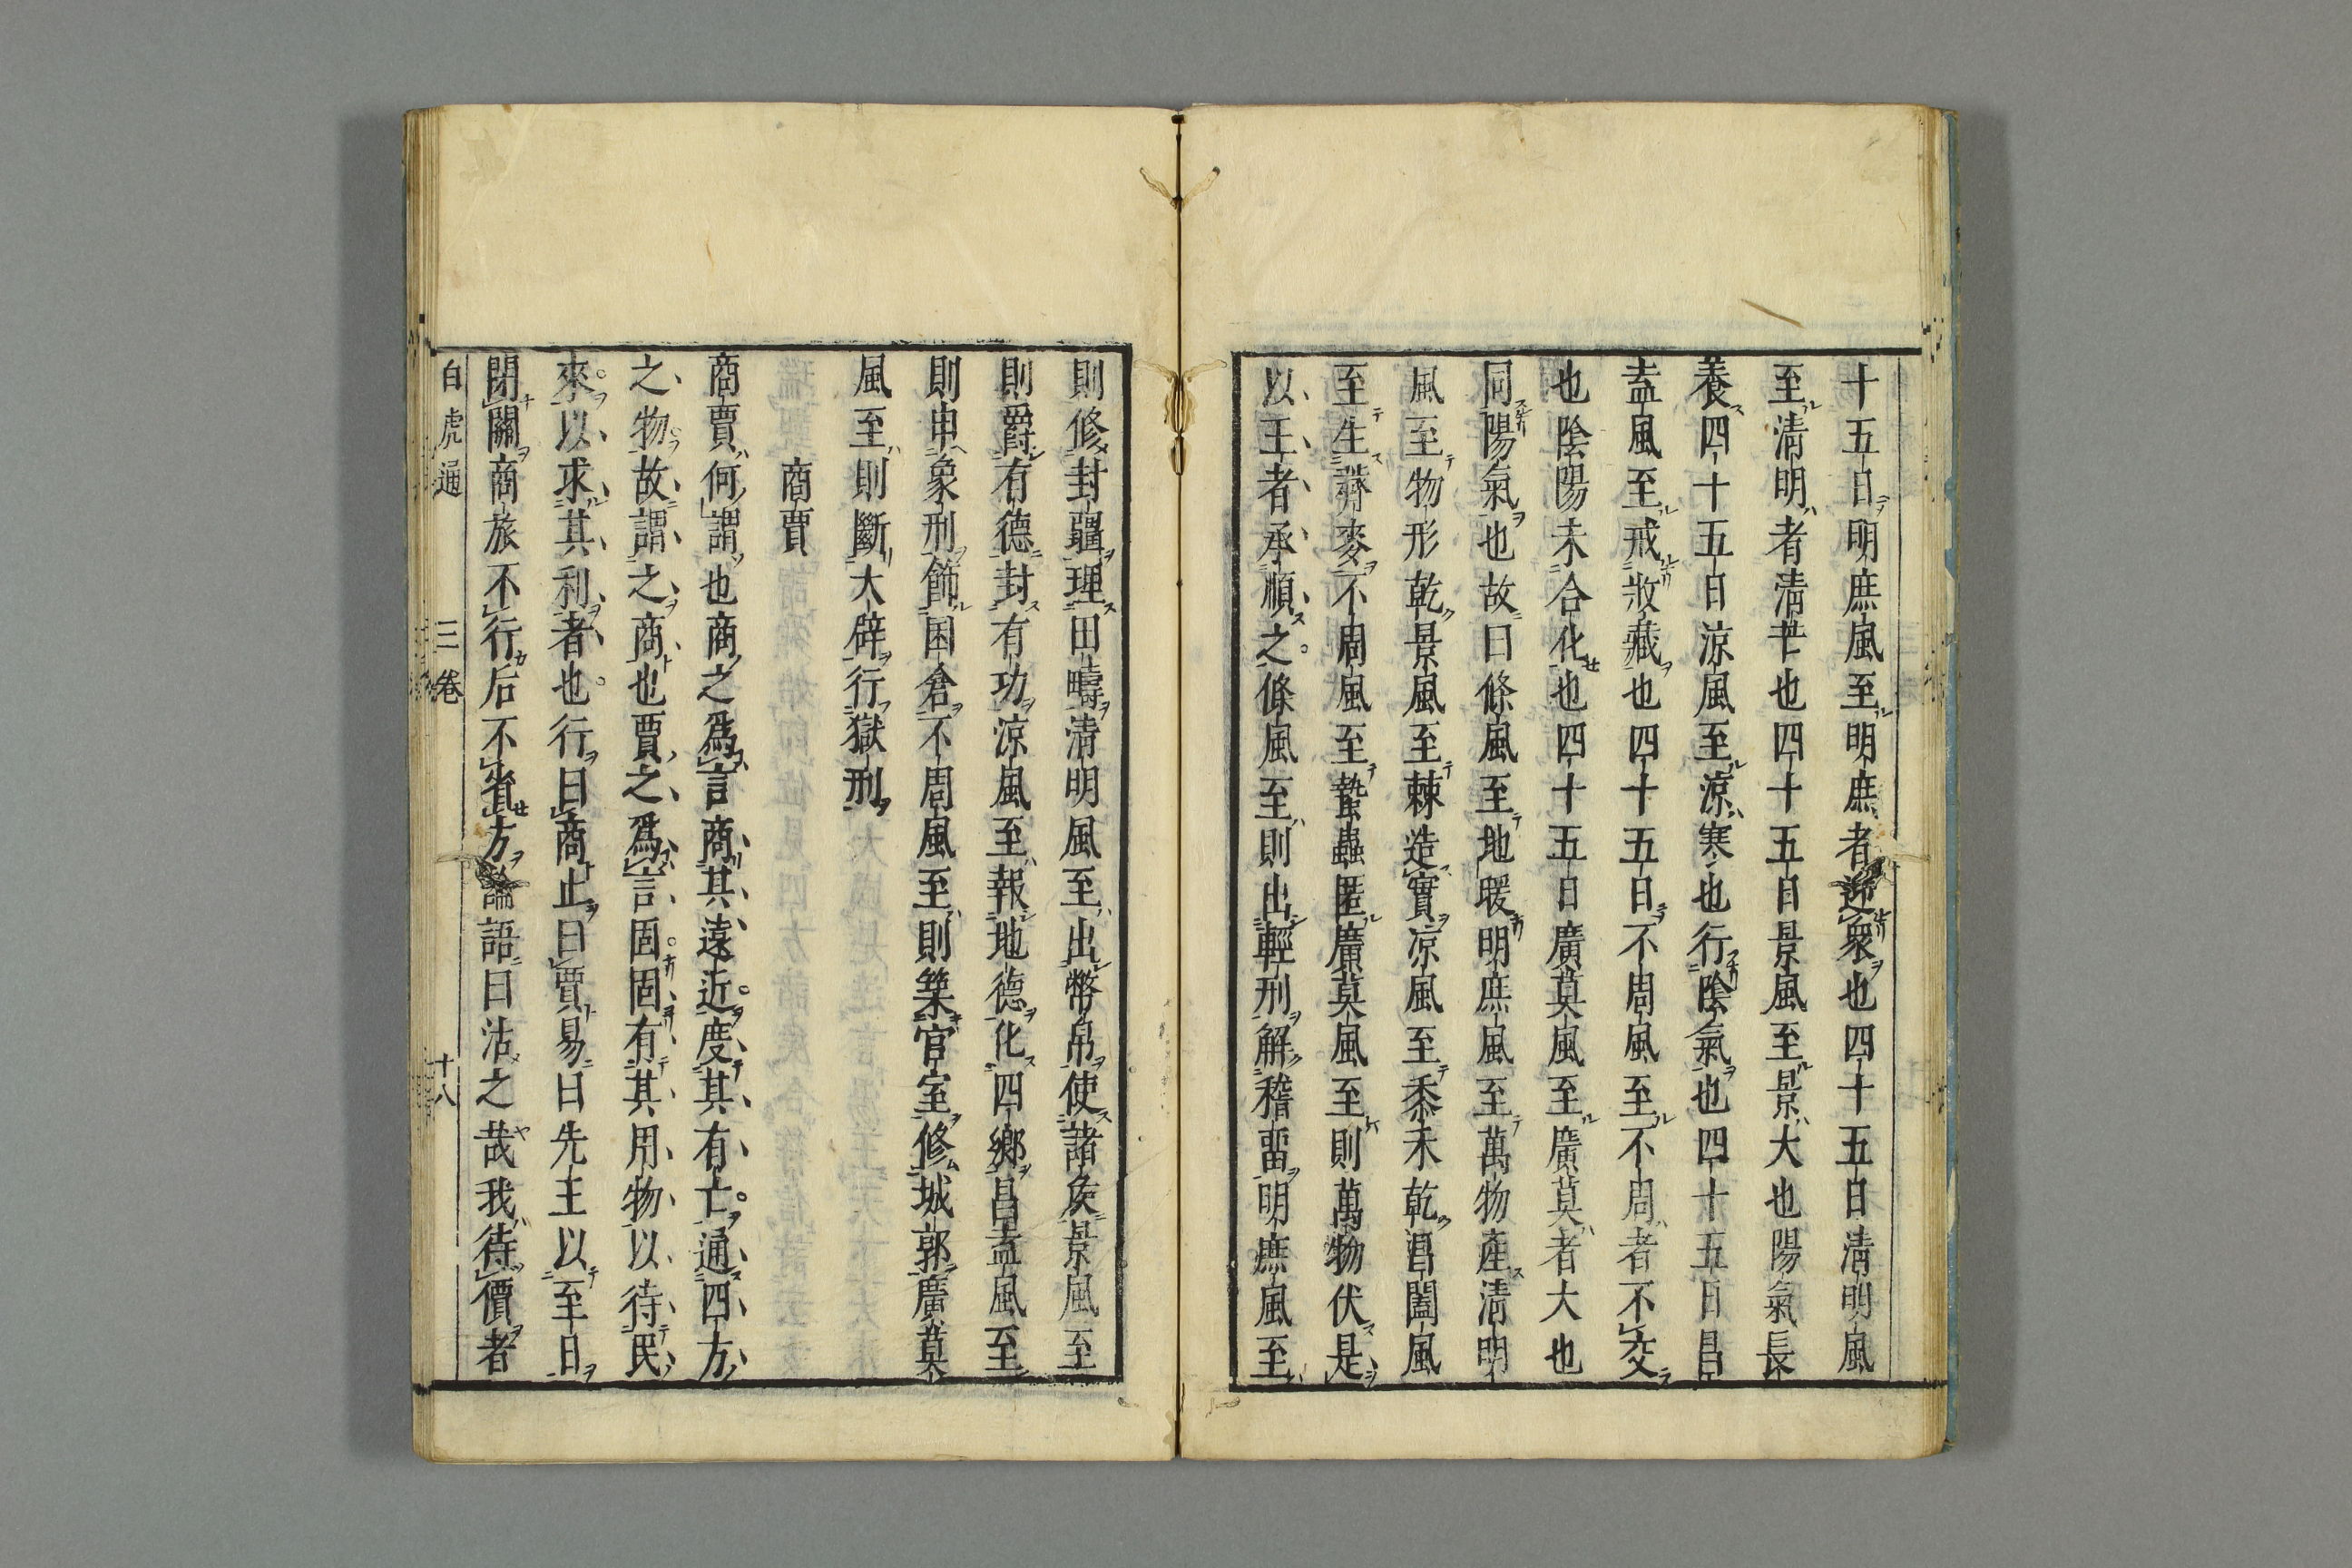 十五日明庶風至明庶者迎衆也四十五日清明風
至清明者清芒也四十五日景風至景大也陽氣長
養四十五日涼風至涼寒也行陰氣也四十五日昌
盍風至戒收藏也四十五日不周風至不周者不交
也陰陽未合化也四十五日廣莫風至廣莫者大也
同陽氣也故曰條風至地暖明庶風至萬物產清明
風至物形乾景風至棘造實凉風至黍禾乾昌闔風
至生薺麥不周風至蟄蟲匿廣莫風至則萬物伏是
以王者承順之條風至則出輕刑解稽畱明庶風至
則修封疆理田疇清明風至出幣帛使諸矦景風至
則爵有德封有功涼風至報地德化四鄉昌盍風至
則申象刑飾囷倉不周風至則築宮室修城郭廣莫
風至則斷大辟行獄刑
商賈
商賈何謂也商之爲言商其遠近度其有亡通四方
之物故謂之商也賈之爲言固固有其用物以待民
來以求其利者也行曰商止曰賈易曰先王以至日
閉關商旅不行后不省方論語曰沽之哉我待價者
白虎通 三卷 十八